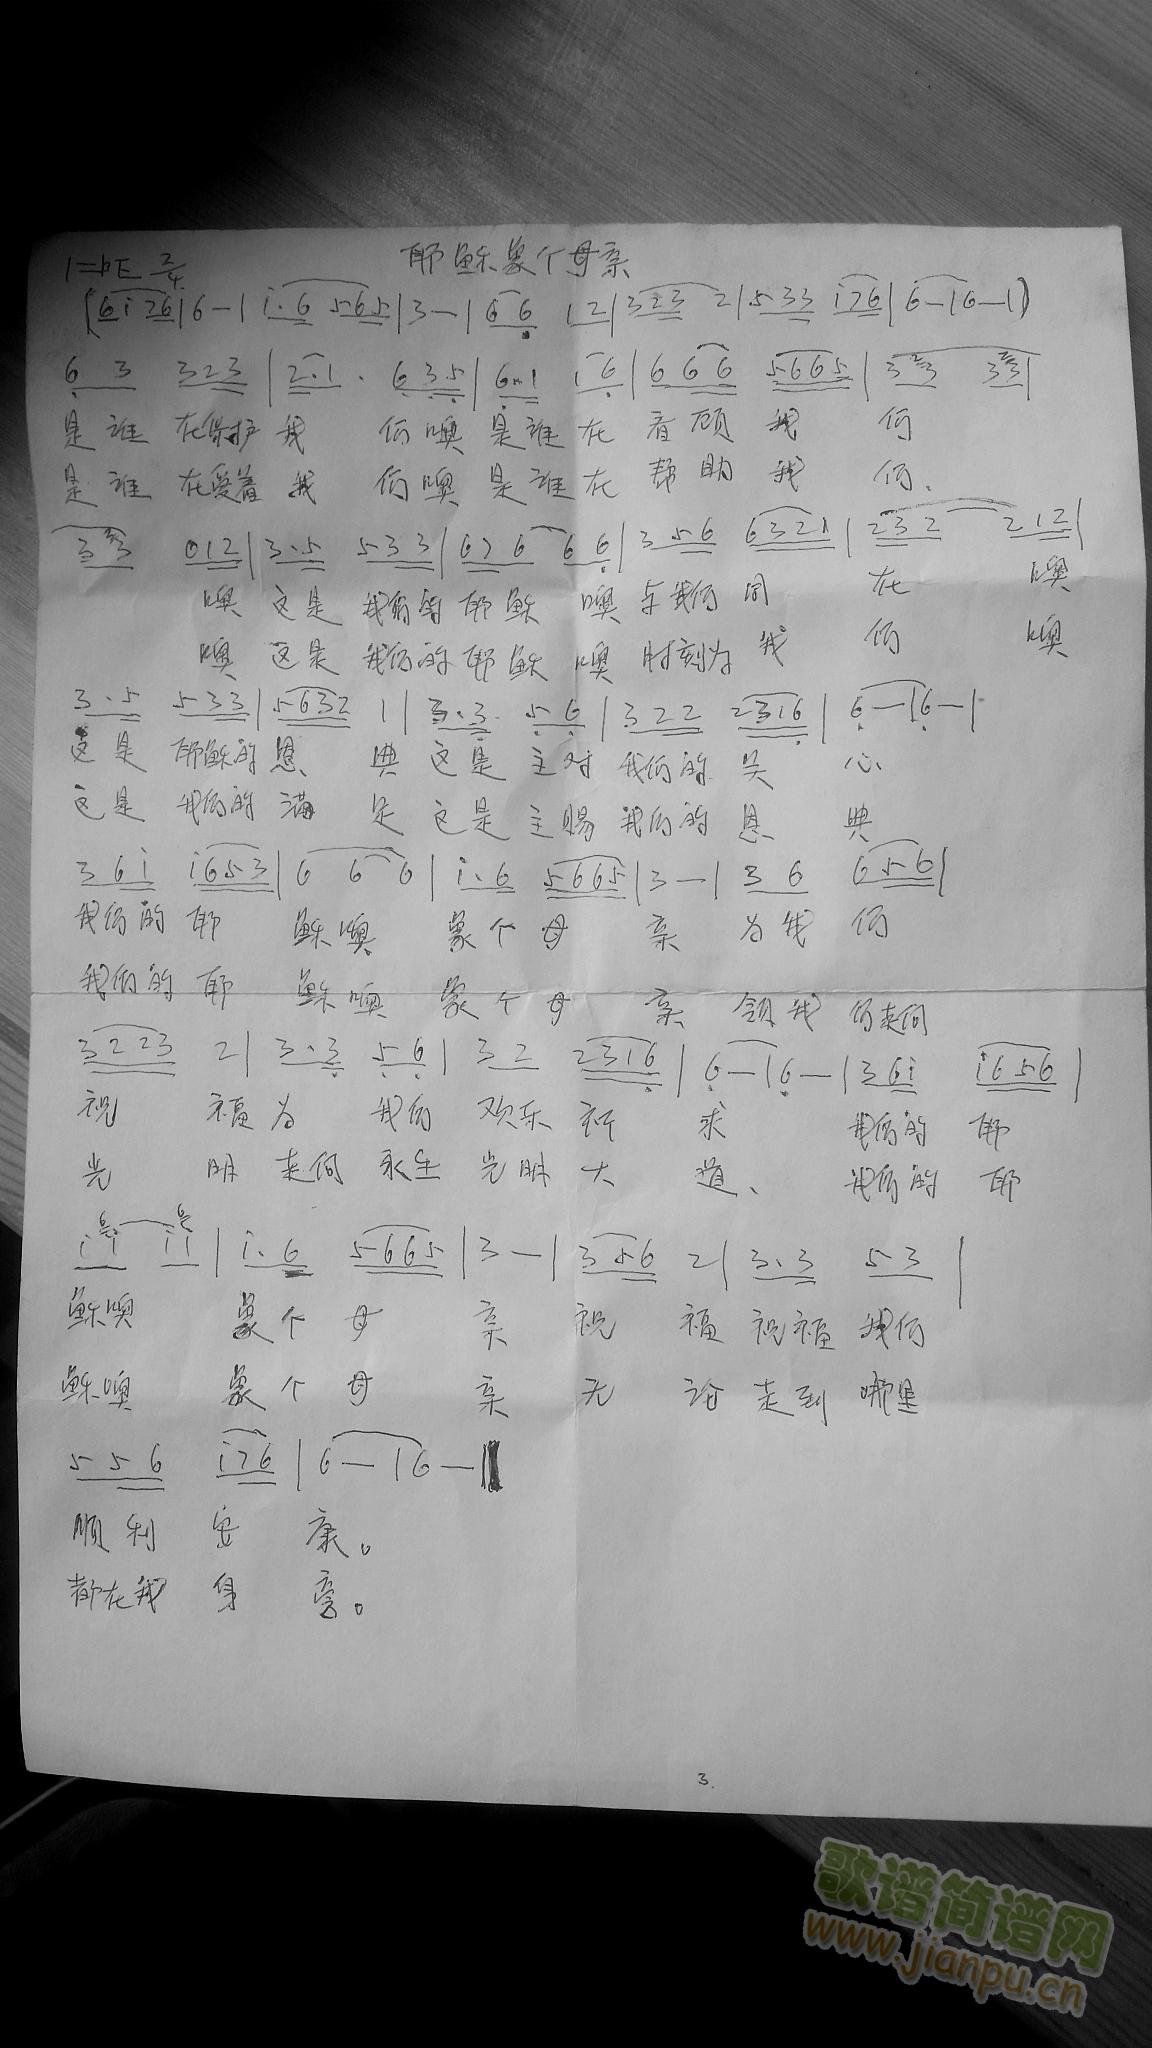 耶稣象个母亲
1=bE 2/4
(6i26|6-|i.6 5653|3-|66 12|323 2|533 i76|6-|6-|)
6 3 323|2.1. 635|6.1 i6|666 5665|3 3 3 3|
是谁 在保护我 们噢 是谁在 看顾 我 们
是谁 在爱着 我 们噢 是谁在 帮助 我 们.
3 3 012|3.5 533|676 66|356 6321|232 212|
噢 这是 我们的 耶稣 噢 与我们 同 在 噢
噢 这是 我们的 耶稣 噢 时刻为 我 们 噢
3.5 533|5632 1|3.3. 56|322 2316|6-|6-|
这是 耶稣的 恩 典 这是 主对 我们的 关 心
这是 我们的 满 足 这是 主赐 我们的 恩 典
36i i653|6 6 6|i.6 5665|3-|3 6 656|
我们的 耶 稣噢 象个 母 亲 为我 们
我们的 耶 稣噢 象个 母 亲 领我 们走向
3223 2|3.3 56|32 2316|6-|6-|36i i656|
祝 福为 我们 欢乐 祈 求 我们的 耶
光 明 走向 永生 光明 大 道、 我们的 耶
i i i i|i.6 5665|3-|356 2|3.3 53|
稣噢 象个 母 亲 祝 福 祝福 我们
稣噢 象个 母 亲 无 论 走到 哪里
556 i76|6-|6-||
顺利 安 康。
都在我 身 旁。
3.
歌谱简谱网
www.jianpu.cn